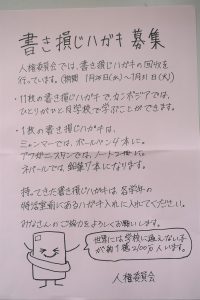 書き損じハガキ 募集
人権委員会では、書き損じハガキの回収を
行っています。(期間 1月26日(火)〜3月31日(火))
・11枚の書き損じハガキで、カンボジアでは、
ひとりがひと月学校で学ぶことができます。
・1枚の書き損じハガキは、
ミャンマーでは、ボールペン 本に。
アフガニスタンでは、ノート 冊に。
ネパールでは、鉛筆7本になります。
持ってきた書き損じハガキは、各学年の
特活室前にあるハガキ入れに入れてください。
みなさんのご協力をよろしくお願いします。
世界には学校に通えない子
が約1億2100万人います。
人権委員会